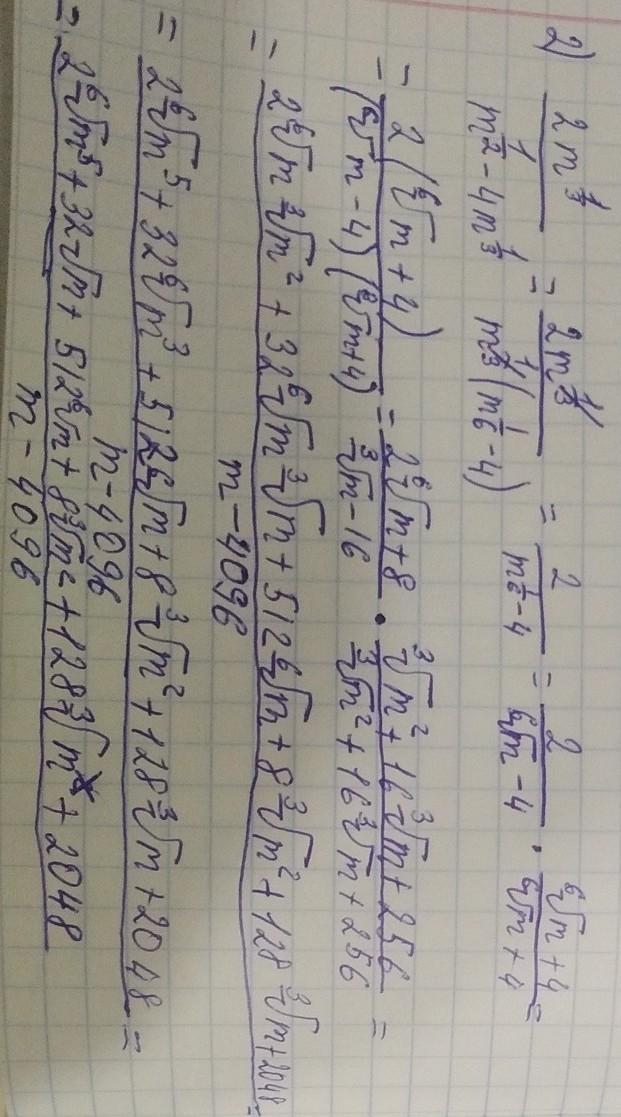 2) \frac{2m^{\frac{1}{3}}}{m^{\frac{1}{2}} - 4m^{\frac{1}{3}}} = \frac{2m^{\frac{1}{3}}}{m^{\frac{1}{3}}(m^{\frac{1}{6}} - 4)} = \frac{2}{m^{\frac{1}{6}} - 4} = \frac{2}{\sqrt[6]{m} - 4} \cdot \frac{\sqrt[6]{m} + 4}{\sqrt[6]{m} + 4} =
= \frac{2(\sqrt[6]{m} + 4)}{(\sqrt[6]{m} - 4)(\sqrt[6]{m} + 4)} = \frac{2\sqrt[6]{m} + 8}{\sqrt[3]{m} - 16} \cdot \frac{\sqrt[3]{m^2} + 16\sqrt[3]{m} + 256}{\sqrt[3]{m^2} + 16\sqrt[3]{m} + 256} =
= \frac{2\sqrt[6]{m}\sqrt[3]{m^2} + 32\sqrt[6]{m}\sqrt[3]{m} + 512\sqrt[6]{m} + 8\sqrt[3]{m^2} + 128\sqrt[3]{m} + 2048}{m - 4096} =
= \frac{2\sqrt[6]{m^5} + 32\sqrt[6]{m^3} + 512\sqrt[6]{m} + 8\sqrt[3]{m^2} + 128\sqrt[3]{m} + 2048}{m - 4096} =
= \frac{2\sqrt[6]{m^5} + 32\sqrt{m} + 512\sqrt[6]{m} + 8\sqrt[3]{m^2} + 128\sqrt[3]{m} + 2048}{m - 4096}